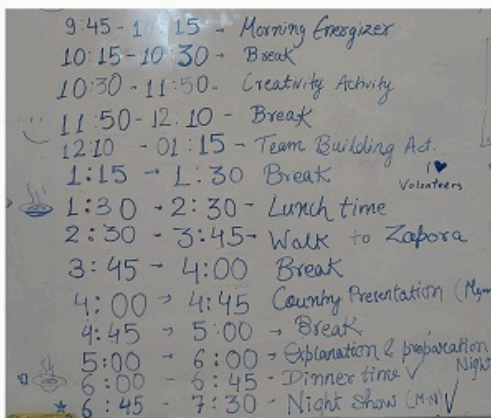 9:45 - 10:15 - Morning Energizer
10:15 - 10:30 - Break
10:30 - 11:50 - Creativity Activity
11:50 - 12:10 - Break
12:10 - 01:15 - Team Building Act.
1:15 - 1:30 Break
I ♥
Volunteers
1:30 - 2:30 - Lunch time
2:30 - 3:45 - Walk to Zapora
3:45 - 4:00 Break
4:00 - 4:45 Country Presentation
4:45 - 5:00 - Break
5:00 - 6:00 - Explanation & preparation
Night
6:00 - 6:45 - Dinner time ✓
6:45 - 7:30 - Night Show (M.N) ✓